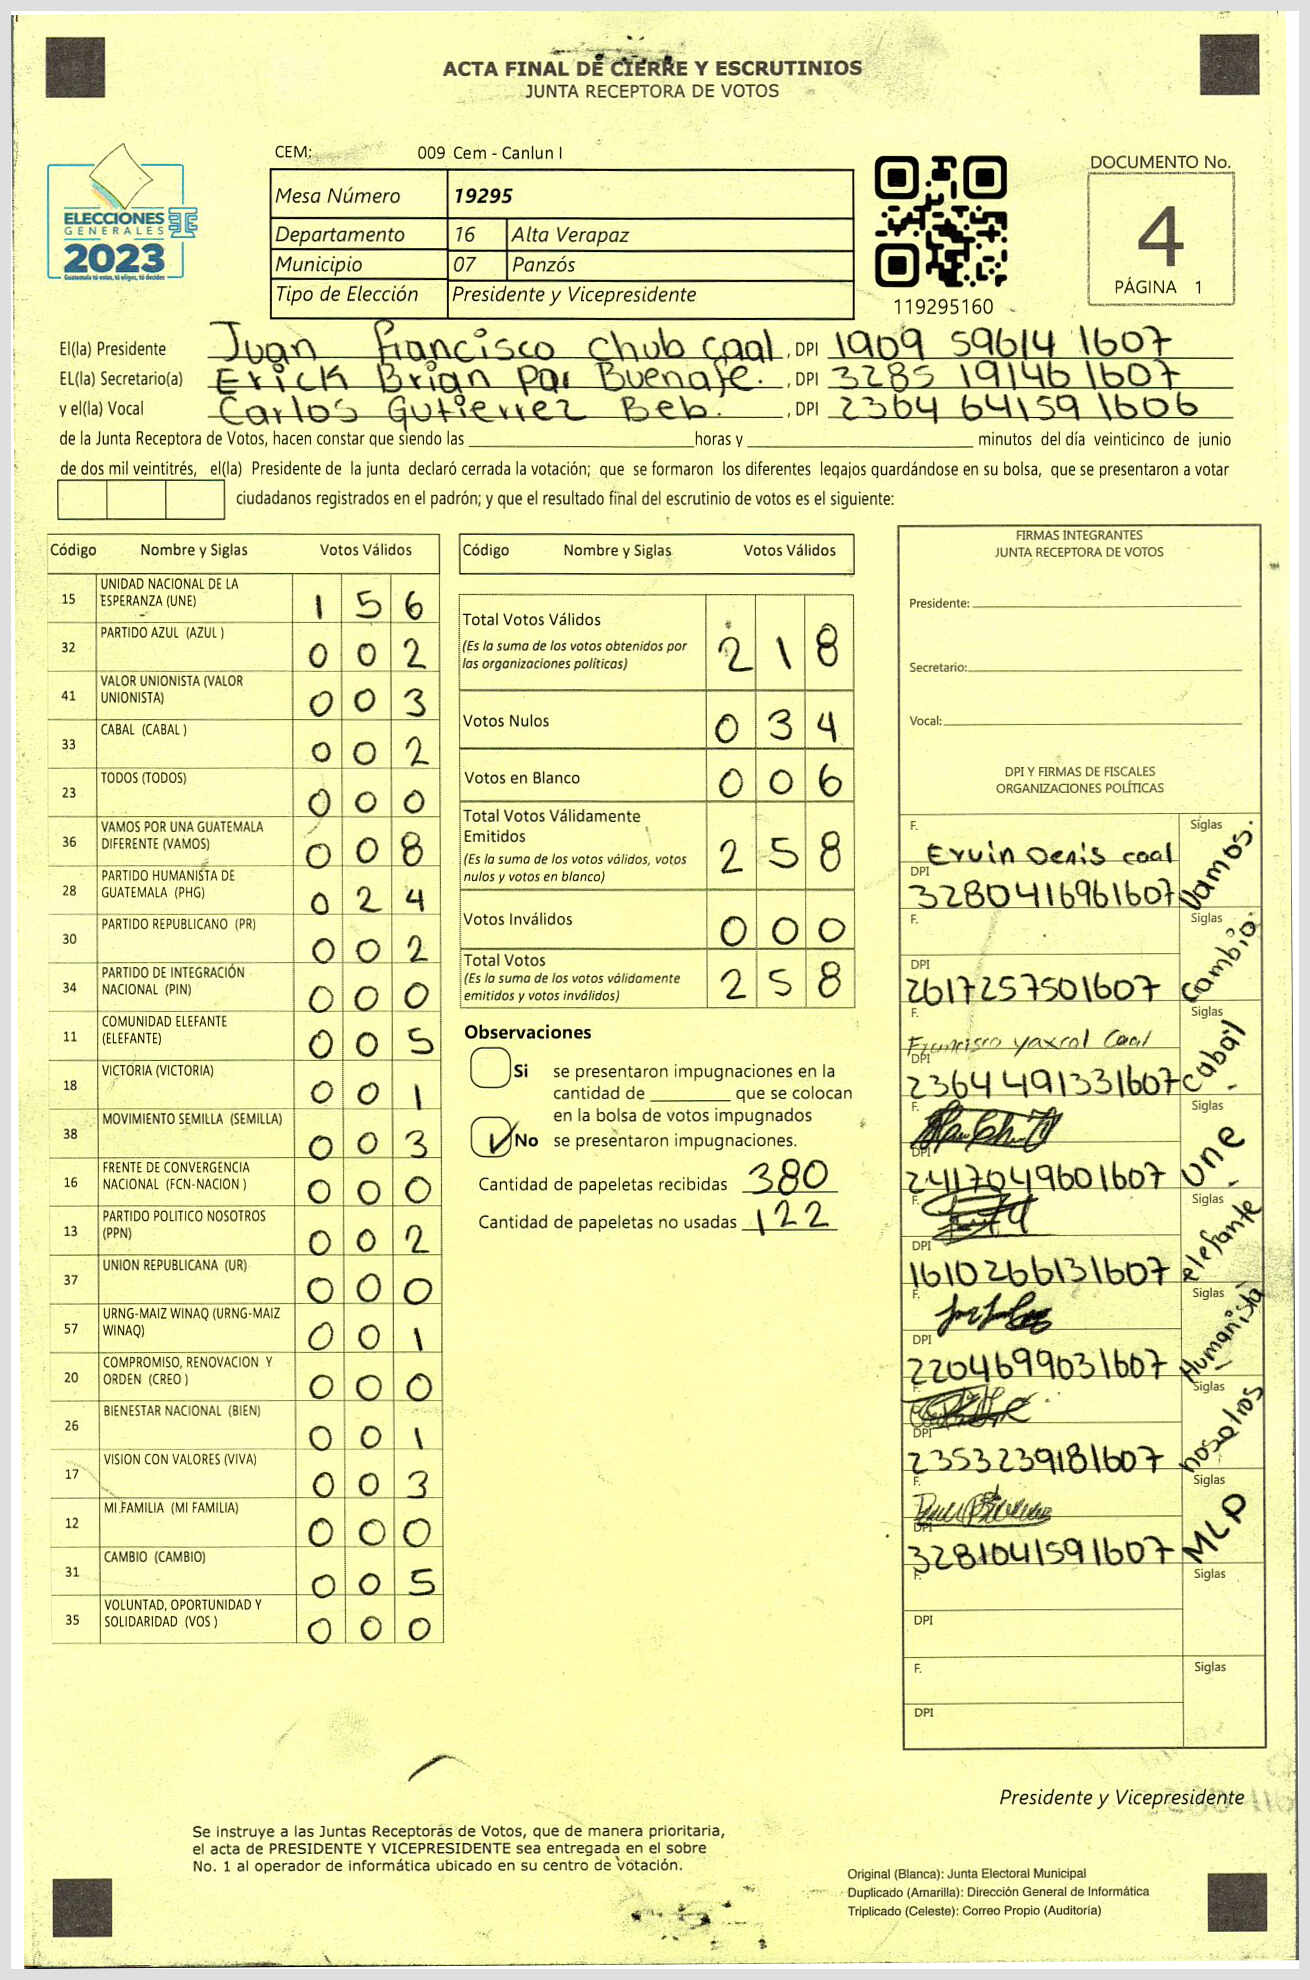 ACTA FINAL DE CIERRE Y ESCRUTINIOS
JUNTA RECEPTORA DE VOTOS
ELECCIONES
GENERALES
2023
Guatemala tú votas, tú eliges, tú decides
CEM: 009 Cem - Canlun I
Mesa Número 19295
Departamento 16 Alta Verapaz
Municipio 07 Panzós
Tipo de Elección Presidente y Vicepresidente
119295160
DOCUMENTO No.
4
PÁGINA 1
El(la) Presidente Juan Francisco Chub Caal, DPI 1909 59614 1607
EL(la) Secretario(a) Erick Brian Par Buenafe., DPI 3285 19146 1607
y el(la) Vocal Carlos Gutierrez Beb., DPI 2364 64159 1606
de la Junta Receptora de Votos, hacen constar que siendo las ____ horas y ____ minutos del día veinticinco de junio
de dos mil veintitrés, el(la) Presidente de la junta declaró cerrada la votación; que se formaron los diferentes legajos guardándose en su bolsa, que se presentaron a votar
ciudadanos registrados en el padrón; y que el resultado final del escrutinio de votos es el siguiente:
Código Nombre y Siglas Votos Válidos
15 UNIDAD NACIONAL DE LA ESPERANZA (UNE) 1 5 6
32 PARTIDO AZUL (AZUL ) 0 0 2
41 VALOR UNIONISTA (VALOR UNIONISTA) 0 0 3
33 CABAL (CABAL ) 0 0 2
23 TODOS (TODOS) 0 0 0
36 VAMOS POR UNA GUATEMALA DIFERENTE (VAMOS) 0 0 8
28 PARTIDO HUMANISTA DE GUATEMALA (PHG) 0 2 4
30 PARTIDO REPUBLICANO (PR) 0 0 2
34 PARTIDO DE INTEGRACIÓN NACIONAL (PIN) 0 0 0
11 COMUNIDAD ELEFANTE (ELEFANTE) 0 0 5
18 VICTORIA (VICTORIA) 0 0 1
38 MOVIMIENTO SEMILLA (SEMILLA) 0 0 3
16 FRENTE DE CONVERGENCIA NACIONAL (FCN-NACION ) 0 0 0
13 PARTIDO POLITICO NOSOTROS (PPN) 0 0 2
37 UNION REPUBLICANA (UR) 0 0 0
57 URNG-MAIZ WINAQ (URNG-MAIZ WINAQ) 0 0 1
20 COMPROMISO, RENOVACION Y ORDEN (CREO ) 0 0 0
26 BIENESTAR NACIONAL (BIEN) 0 0 1
17 VISION CON VALORES (VIVA) 0 0 3
12 MI FAMILIA (MI FAMILIA) 0 0 0
31 CAMBIO (CAMBIO) 0 0 5
35 VOLUNTAD, OPORTUNIDAD Y SOLIDARIDAD (VOS ) 0 0 0
Código Nombre y Siglas Votos Válidos
Total Votos Válidos 2 1 8
(Es la suma de los votos obtenidos por
las organizaciones políticas)
Votos Nulos 0 3 4
Votos en Blanco 0 0 6
Total Votos Válidamente
Emitidos 2 5 8
(Es la suma de los votos válidos, votos
nulos y votos en blanco)
Votos Inválidos 0 0 0
Total Votos 2 5 8
(Es la suma de los votos válidamente
emitidos y votos inválidos)
Observaciones
Si se presentaron impugnaciones en la
cantidad de ____ que se colocan
en la bolsa de votos impugnados
No se presentaron impugnaciones.
Cantidad de papeletas recibidas 380
Cantidad de papeletas no usadas 122
FIRMAS INTEGRANTES
JUNTA RECEPTORA DE VOTOS
Presidente:
Secretario:
Vocal:
DPI Y FIRMAS DE FISCALES
ORGANIZACIONES POLÍTICAS
F. Ervin Denis caal Siglas Vamos.
DPI 3280416961607
F. Siglas Cambio.
DPI 2617257501607
F. Francisco yaxcal Caal Siglas Cabal
DPI 2364491331607
F. Siglas UNe
DPI 2417049601607
F. Siglas elefante
DPI 1610266131607
F. Siglas Humanista
DPI 2204699031607
F. Siglas nosotros
DPI 2353239181607
F. Siglas MLP
DPI 3281041591607
F. Siglas
DPI
F. Siglas
DPI
Presidente y Vicepresidente
Se instruye a las Juntas Receptoras de Votos, que de manera prioritaria,
el acta de PRESIDENTE Y VICEPRESIDENTE sea entregada en el sobre
No. 1 al operador de informática ubicado en su centro de votación.
Original (Blanca): Junta Electoral Municipal
Duplicado (Amarilla): Dirección General de Informática
Triplicado (Celeste): Correo Propio (Auditoría)